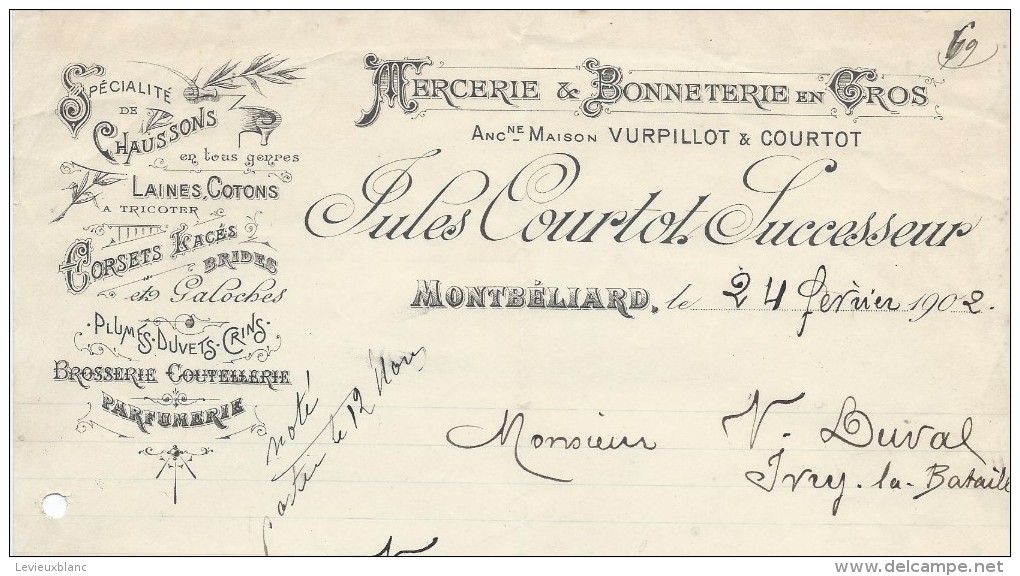 69
SPÉCIALITÉ
DE
CHAUSSONS
en tous genres
LAINES, COTONS
A TRICOTER
CORSETS LACÉS
BRIDES
et Galoches
PLUMES·DUVETS·CRINS·
BROSSERIE COUTELLERIE
PARFUMERIE
MERCERIE & BONNETERIE EN GROS
ANC.NE MAISON VURPILLOT & COURTOT
Jules Courtot, Successeur
MONTBÉLIARD, le 24 fèvrier 1902.
noté
partir le 12 Mars
Monsieur V. Duval
Ivry-la-Bataille
Levieuxblanc
delcampe.net